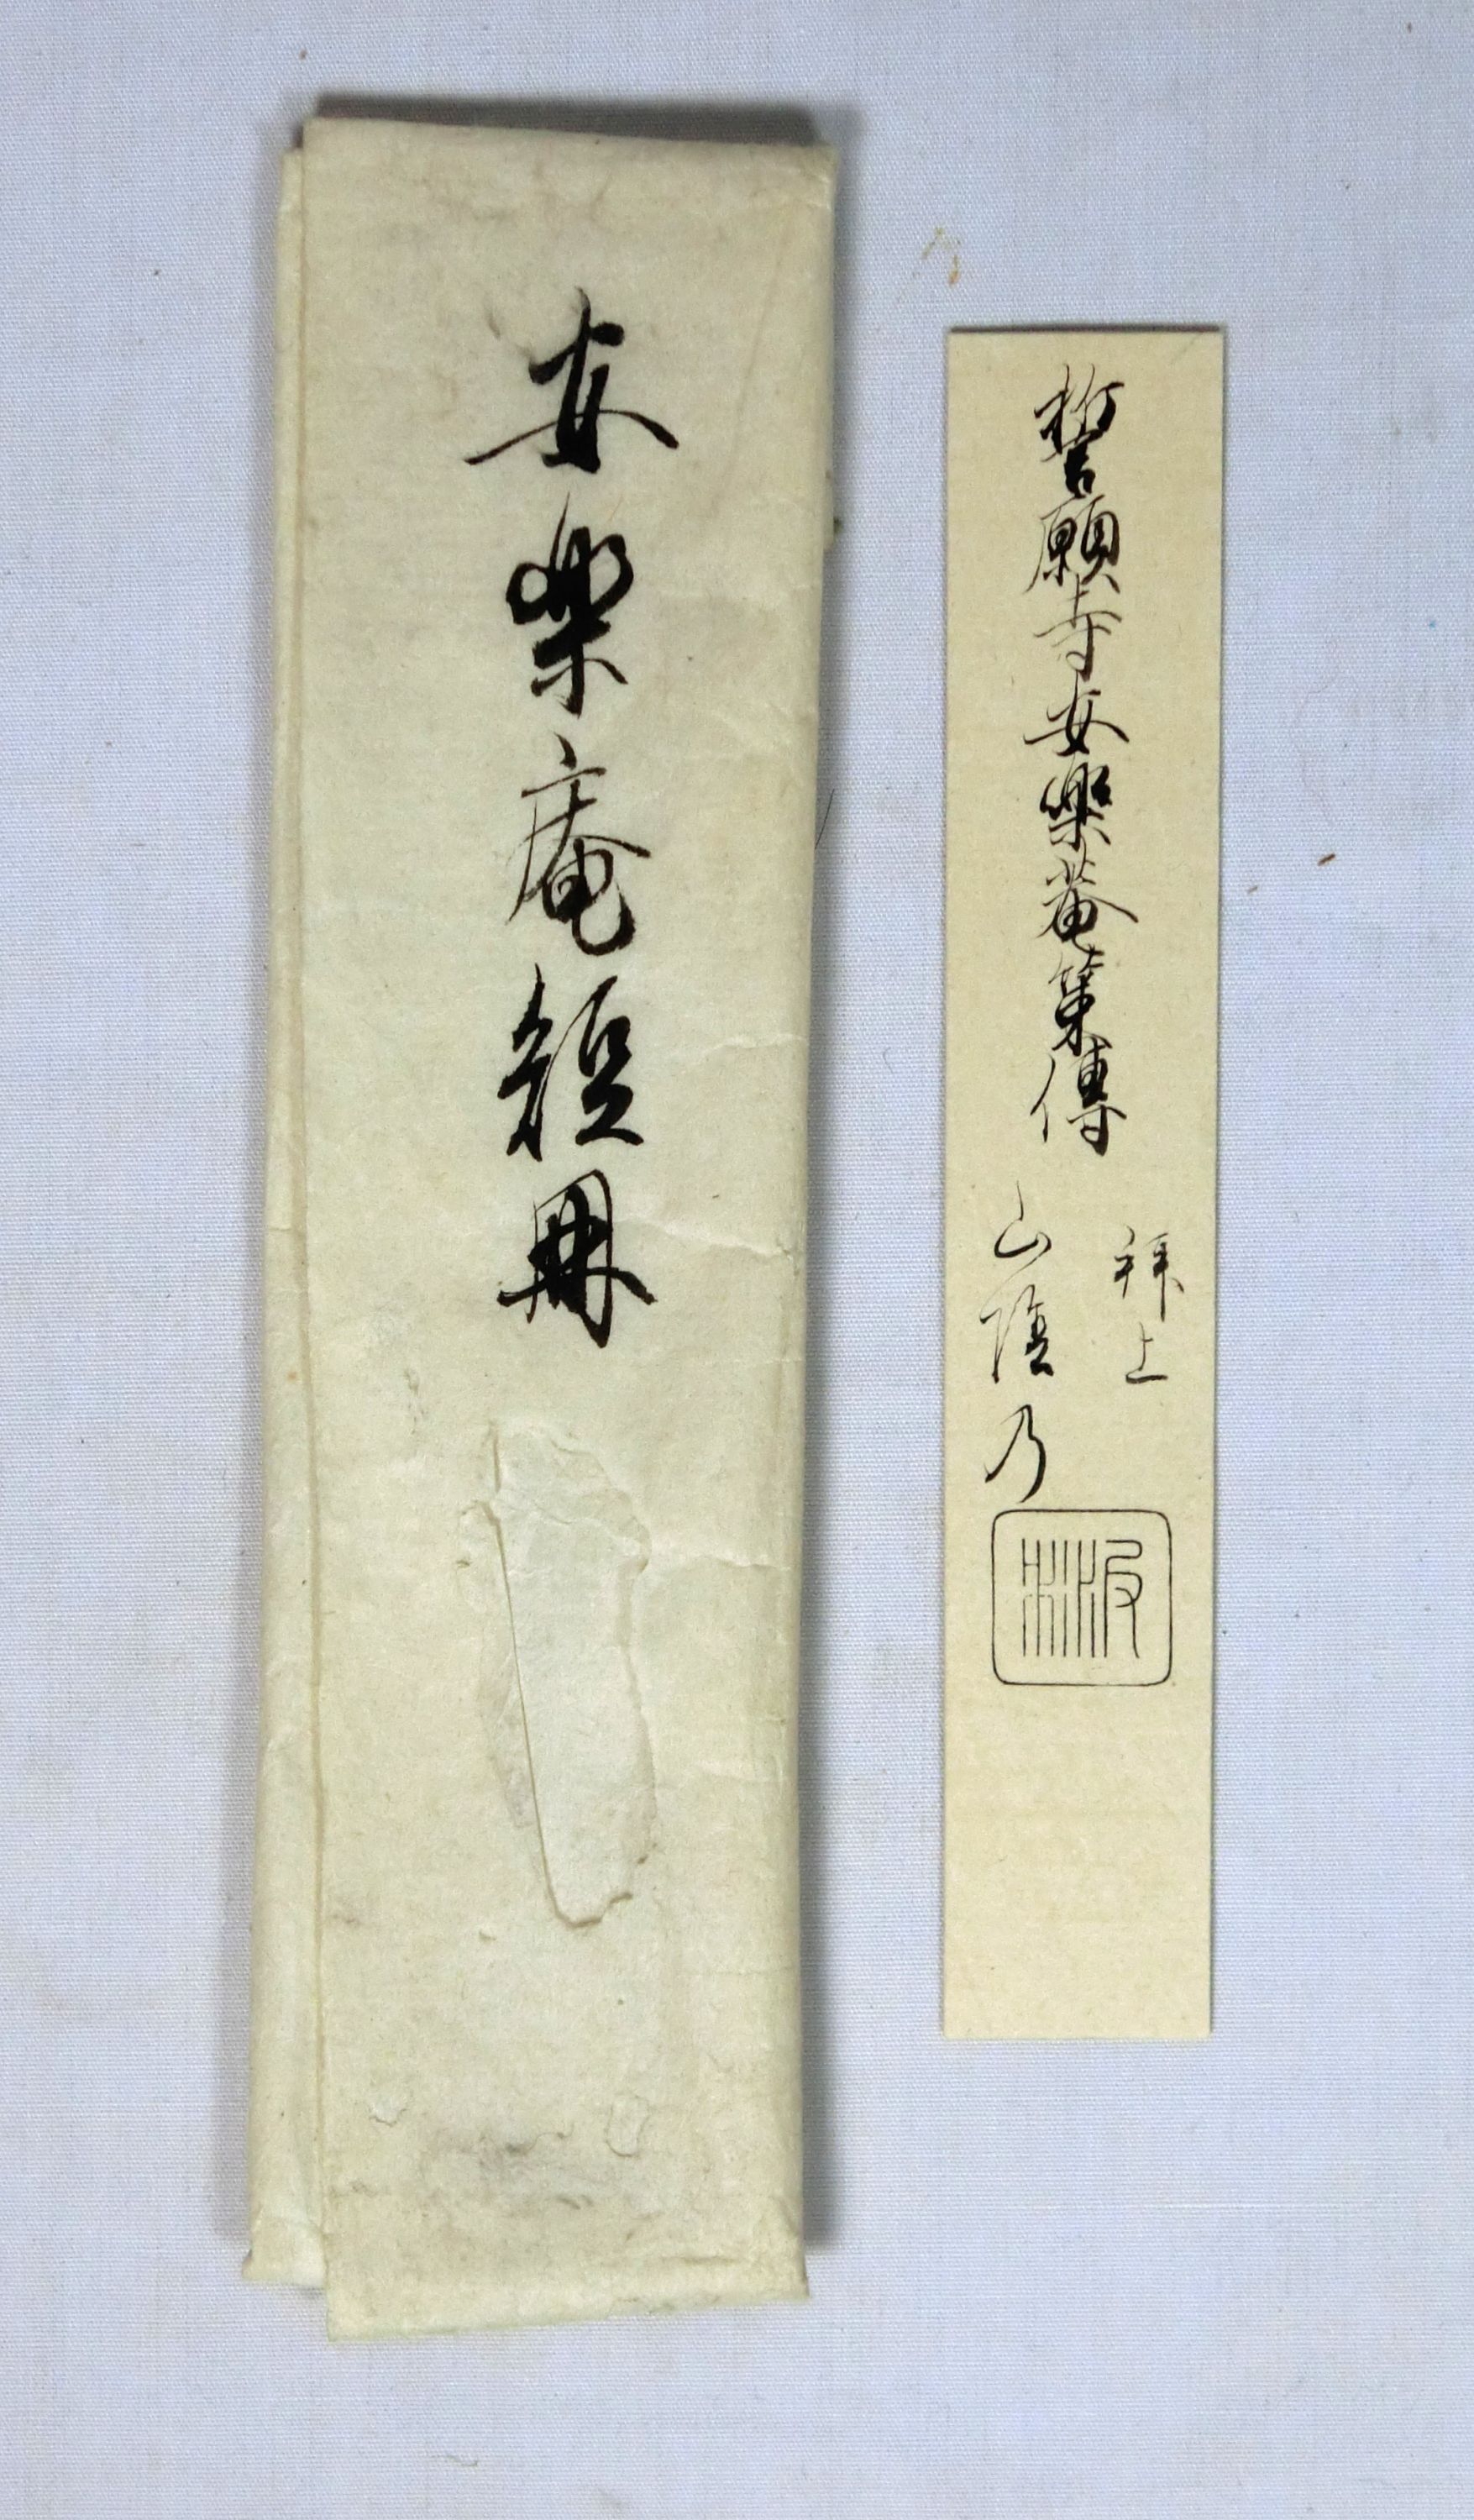 安楽庵短冊
誓願寺安樂菴策傳
拝上
山陰乃